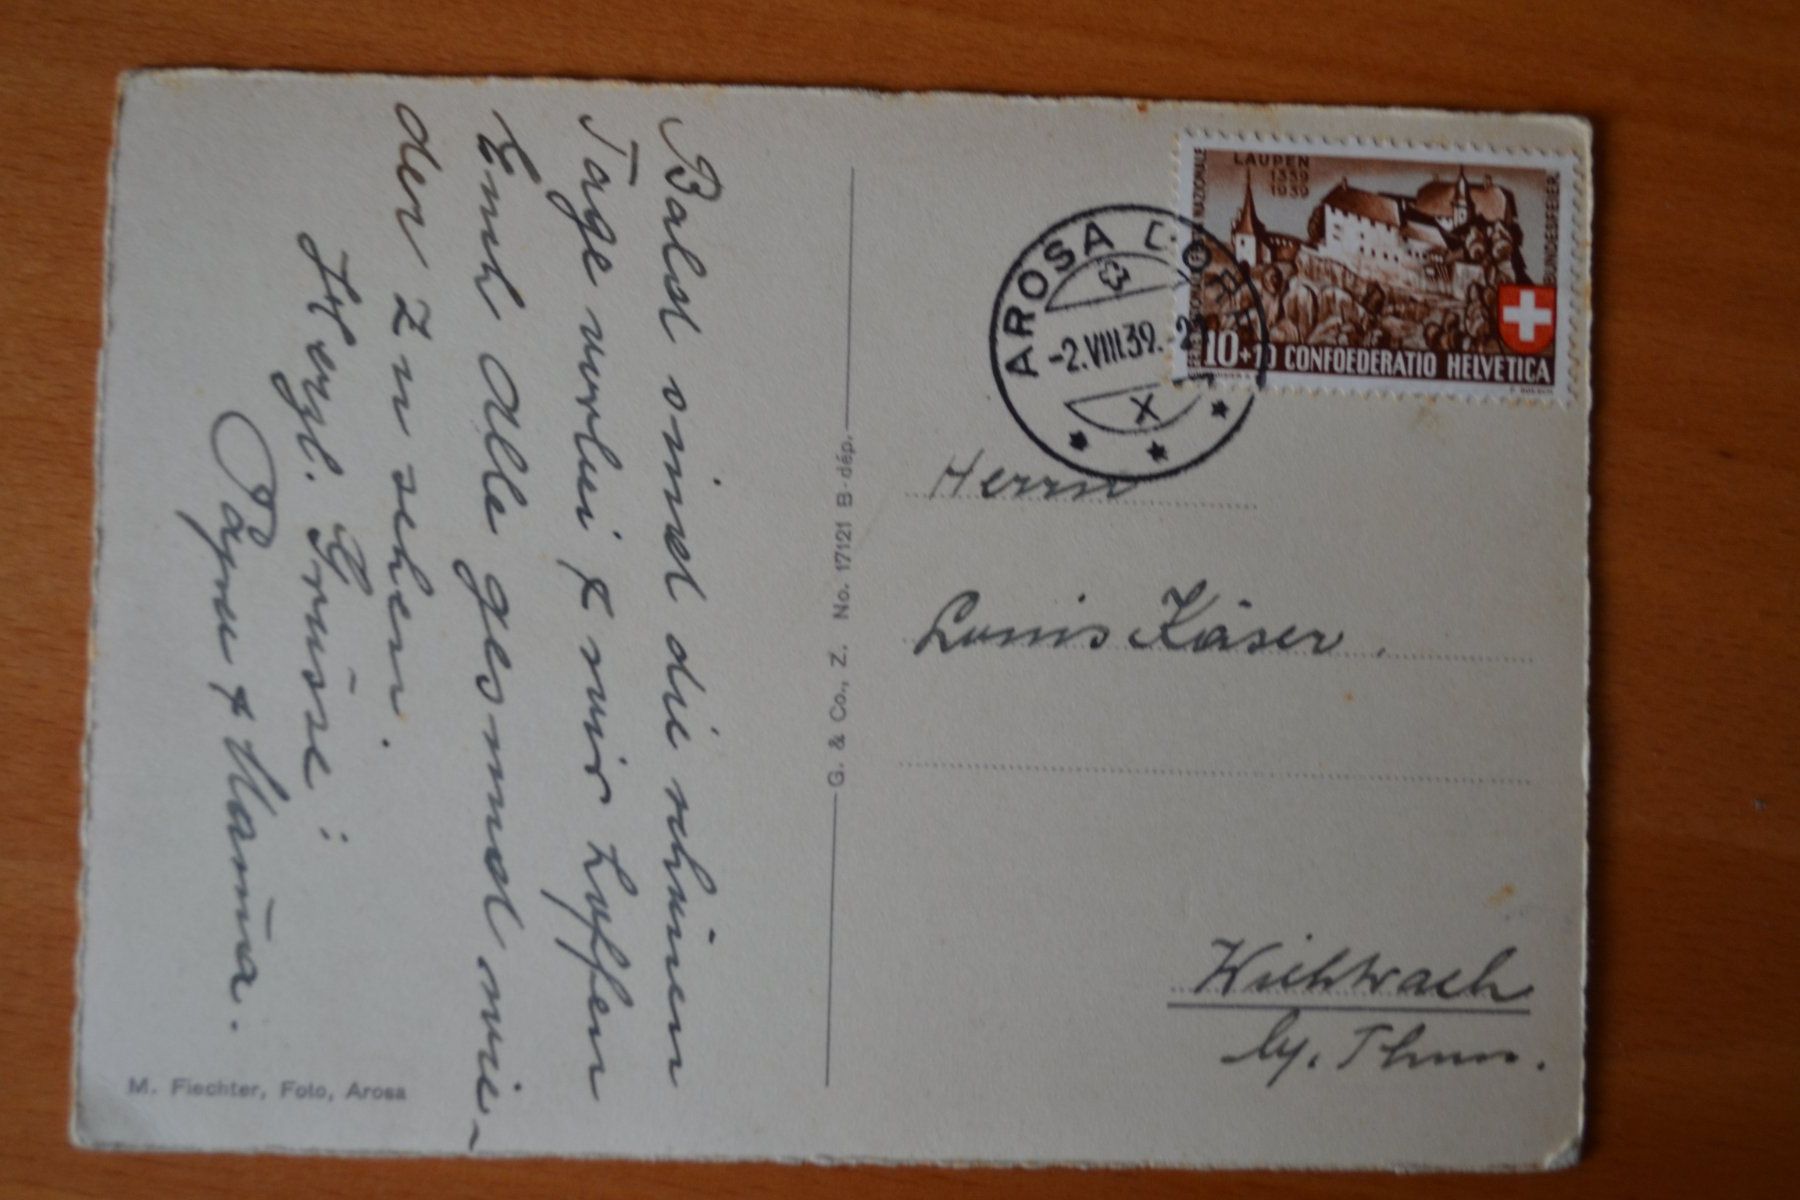 Bald sind die schönen
Tage vorbei & wir hoffen
Euch Alle gesund wie-
der zu sehen.
Herzl. Grüsse:
Papa & Mama.
M. Fiechter, Foto, Arosa
G. & Co., Z. No. 17121 B-dép.
AROSA
-2.VIII.39.-2
X
LAUPEN
1339
1939
BUNDESFEIER
NAZIONALE
10+10 CONFOEDERATIO HELVETICA
Herrn
Louis Käser.
Wichtrach
by. Thun.